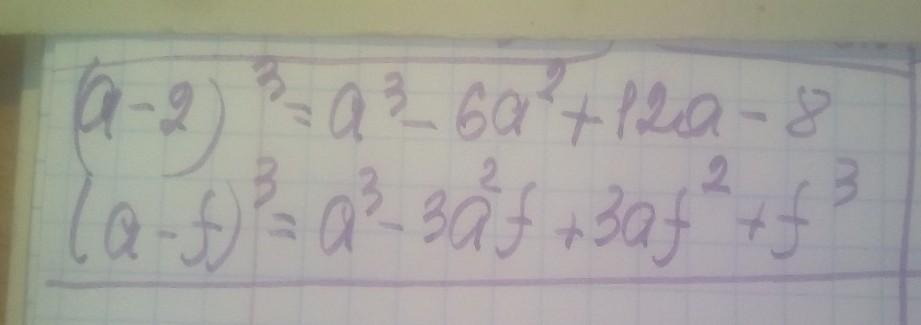 (a-2)³ = a³ - 6a² + 12a - 8
(a-f)³ = a³ - 3a²f + 3af² + f³